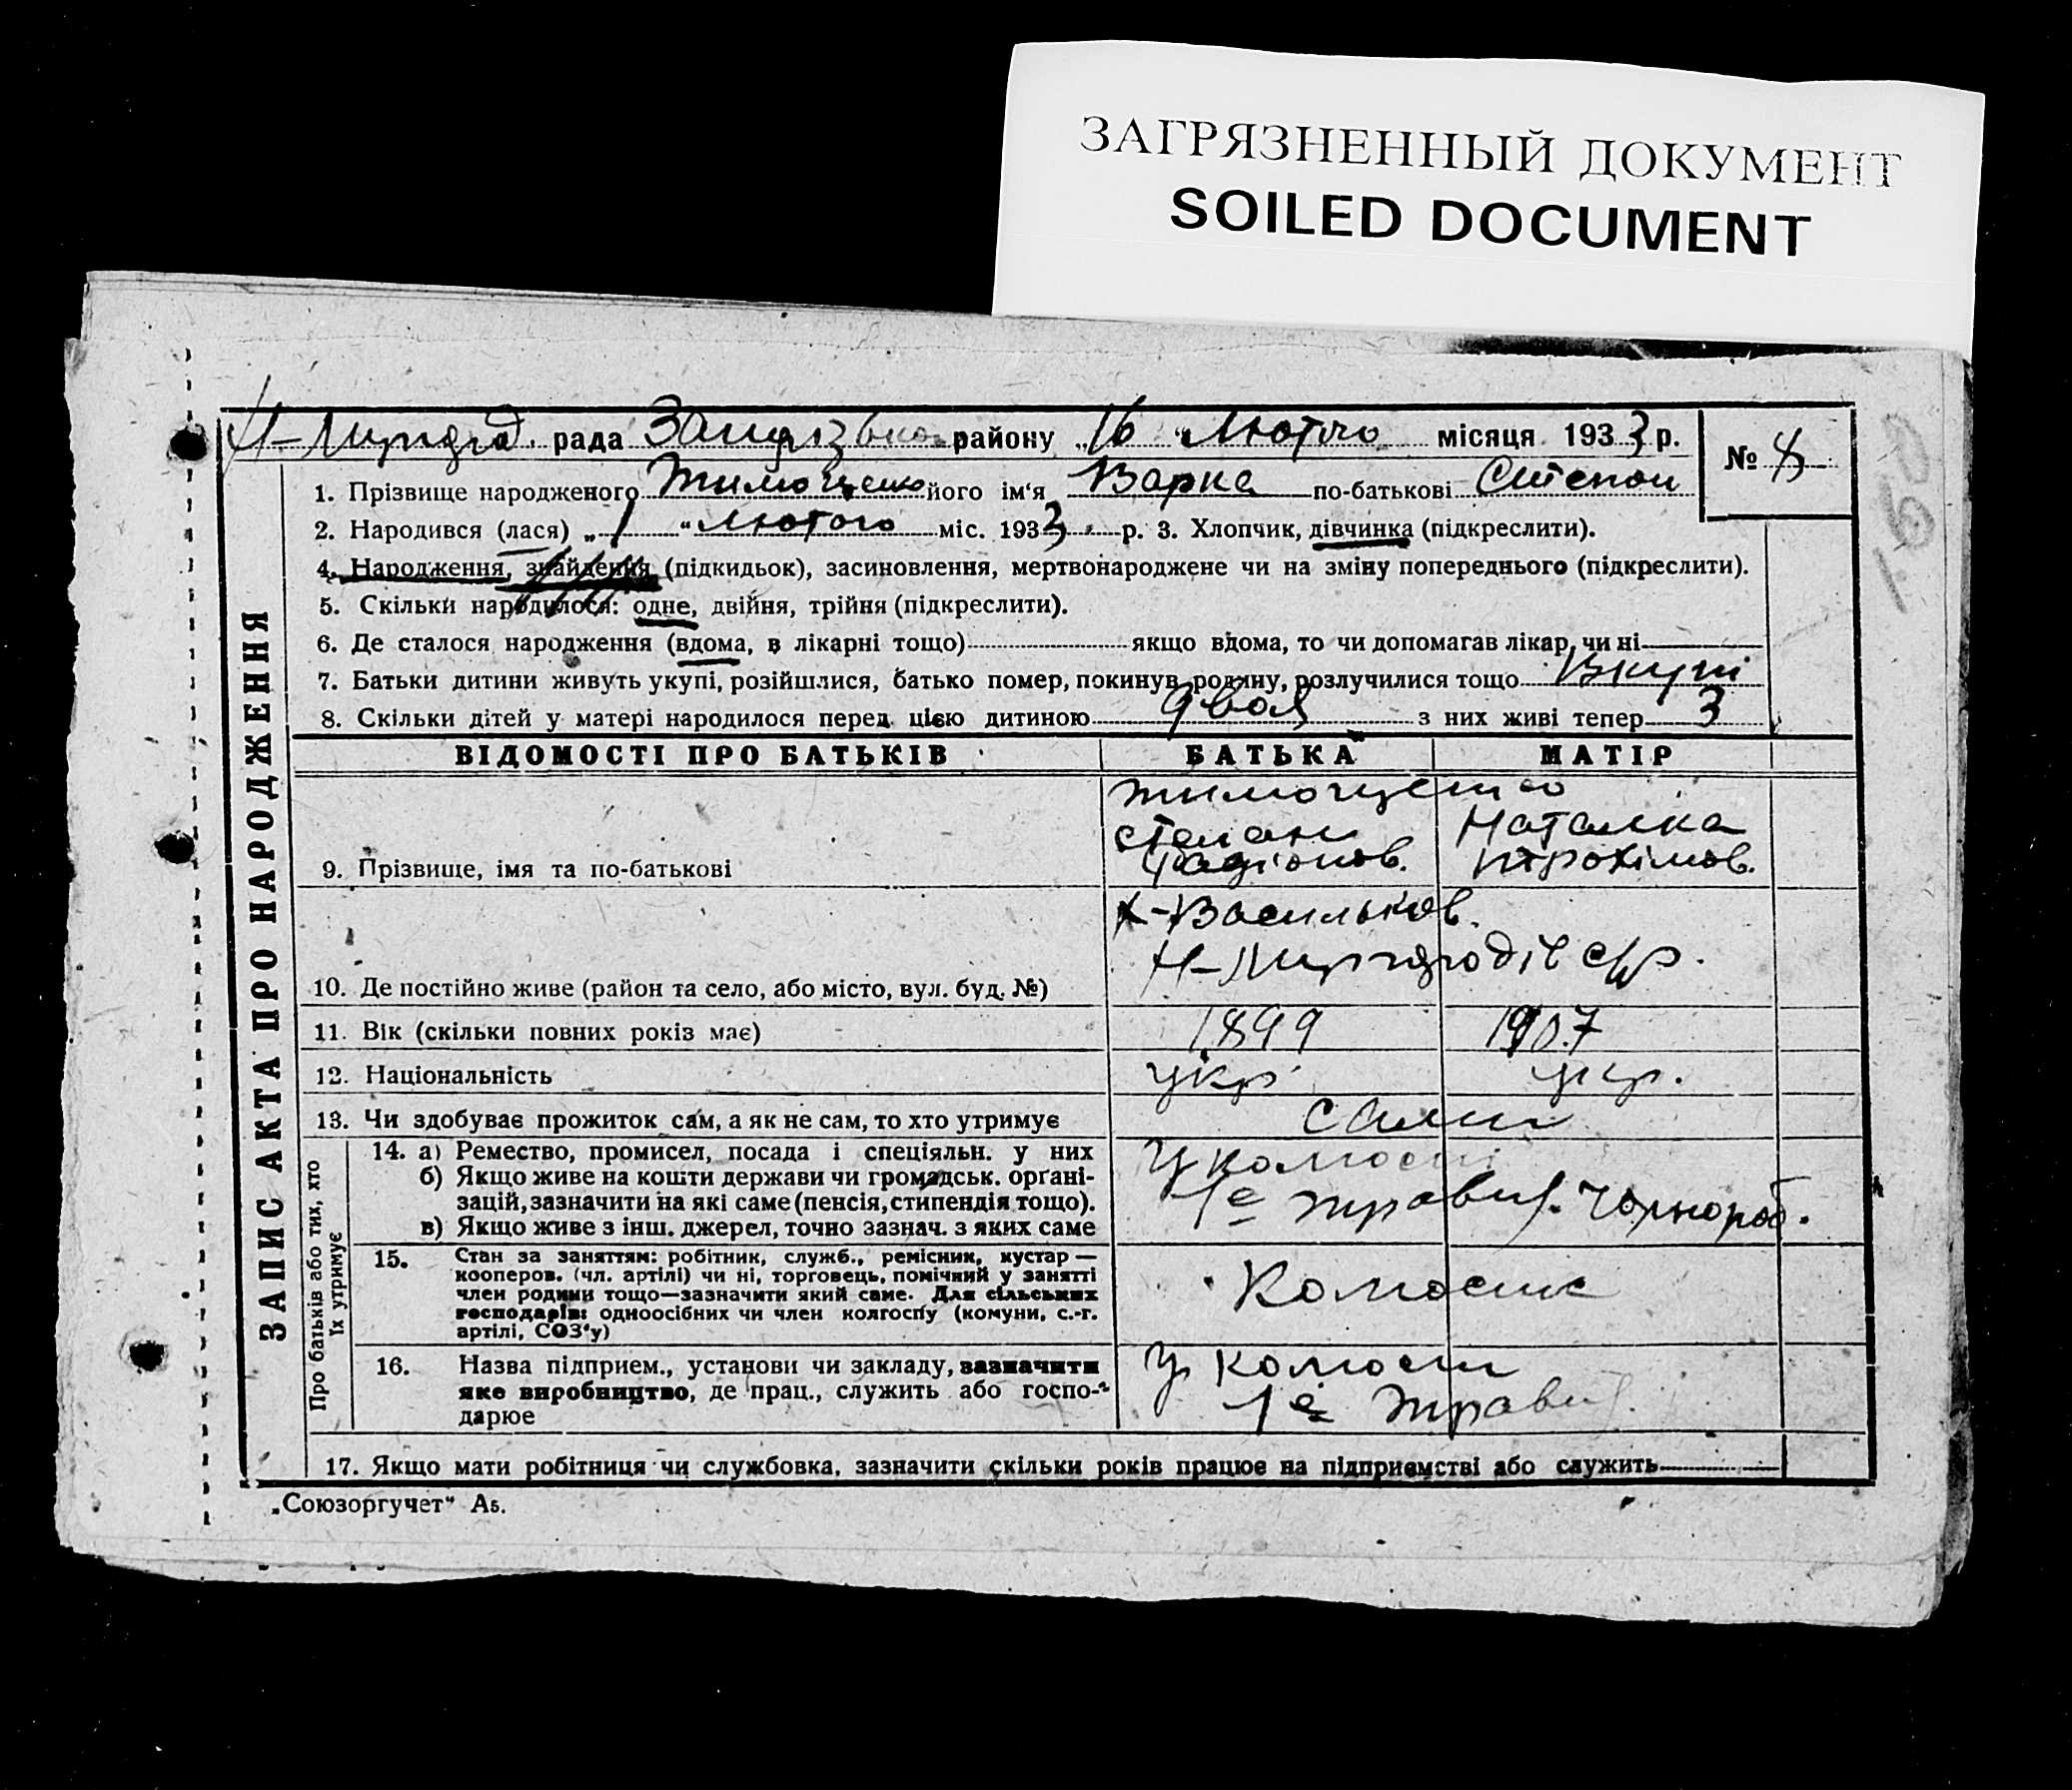 ЗАГРЯЗНЕННЫЙ ДОКУМЕНТ
SOILED DOCUMENT
рада району „16“ Лютого місяця 1933 р.
№ 8
1. Прізвище народженого Тимощенко його ім'я Варка по-батькові Степан
2. Народився (лася) „1“ Лютого міс. 1933 р. 3. Хлопчик, дівчинка (підкреслити).
4. Народження, знайдення (підкидьок), засиновлення, мертвонароджене чи на зміну попереднього (підкреслити).
5. Скільки народилося: одне, двійня, трійня (підкреслити).
6. Де сталося народження (вдома, в лікарні тощо) якщо вдома, то чи допомагав лікар, чи ні
7. Батьки дитини живуть укупі, розійшлися, батько помер, покинув родину, розлучилися тощо Вкупі
8. Скільки дітей у матері народилося перед цією дитиною двоя з них живі тепер 3
ЗАПИС АКТА ПРО НАРОДЖЕННЯ
ВІДОМОСТІ ПРО БАТЬКІВ БАТЬКА МАТІР
Тимощенко
Степан Наталка
9. Прізвище, імя та по-батькові Радіонов. Трохімов.
Васильков.
Н-Миргородів с/р.
10. Де постійно живе (район та село, або місто, вул. буд. №)
11. Вік (скільки повних років має) 1899 1907
12. Національність укр. укр.
13. Чи здобуває прожиток сам, а як не сам, то хто утримує сами
Про батьків або тих, хто їх утримує
14. а) Ремество, промисел, посада і спеціяльн. у них
б) Якщо живе на кошти держави чи громадськ. орґані-
зацій, зазначити на які саме (пенсія, стипендія тощо).
в) Якщо живе з інш. джерел, точно зазнач. з яких саме
У колгосп
1е травн. Чорнороб.
15. Стан за заняттям: робітник, служб., ремісник, кустар —
кооперов. (чл. артілі) чи ні, торговець, помічний у занятті
член родини тощо—зазначити який саме. Для сільських
господарів: одноосібних чи член колгоспу (комуни, с.-г.
артілі, СОЗ'у)
Колгосник
16. Назва підприєм., установи чи закладу, зазначити
яке виробництво, де прац., служить або госпо-
дарює
У колгосп
1е травн.
17. Якщо мати робітниця чи службовка, зазначити скільки років працює на підприємстві або служить
„Союзоргучет“ А5.